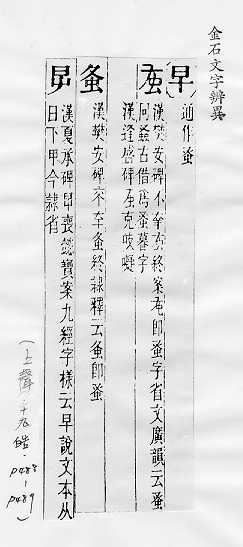 金石文字辨異
早
通作蚤
漢樊安碑不幸
終案
即蚤字省文廣韻云蚤
同蚤古借為蚤暮字
漢逢盛碑
克岐嶷
蚤
漢樊安碑不幸蚤終隸釋云蚤即蚤
漢夏承碑
喪懿寶案九經字樣云早說文本从
日下甲今隸省
(上聲·十九皓·
p488-
p489)